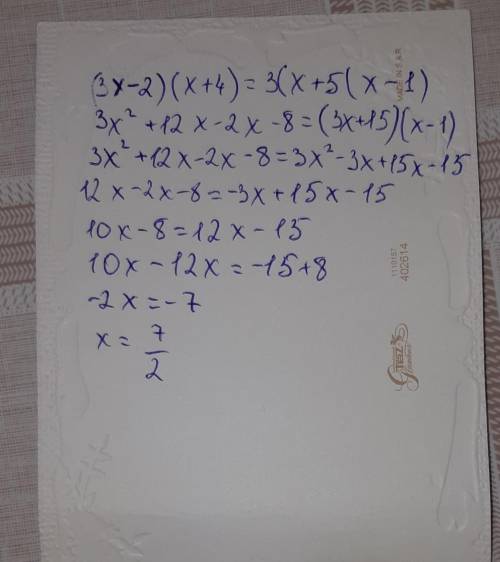 (3x-2)(x+4)=3(x+5(x-1)
3x²+12x-2x-8=(3x+15)(x-1)
3x²+12x-2x-8=3x²-3x+15x-15
12x-2x-8=-3x+15x-15
10x-8=12x-15
10x-12x=-15+8
-2x=-7
x=7/2
MADE IN S.A.R
1110157
402614